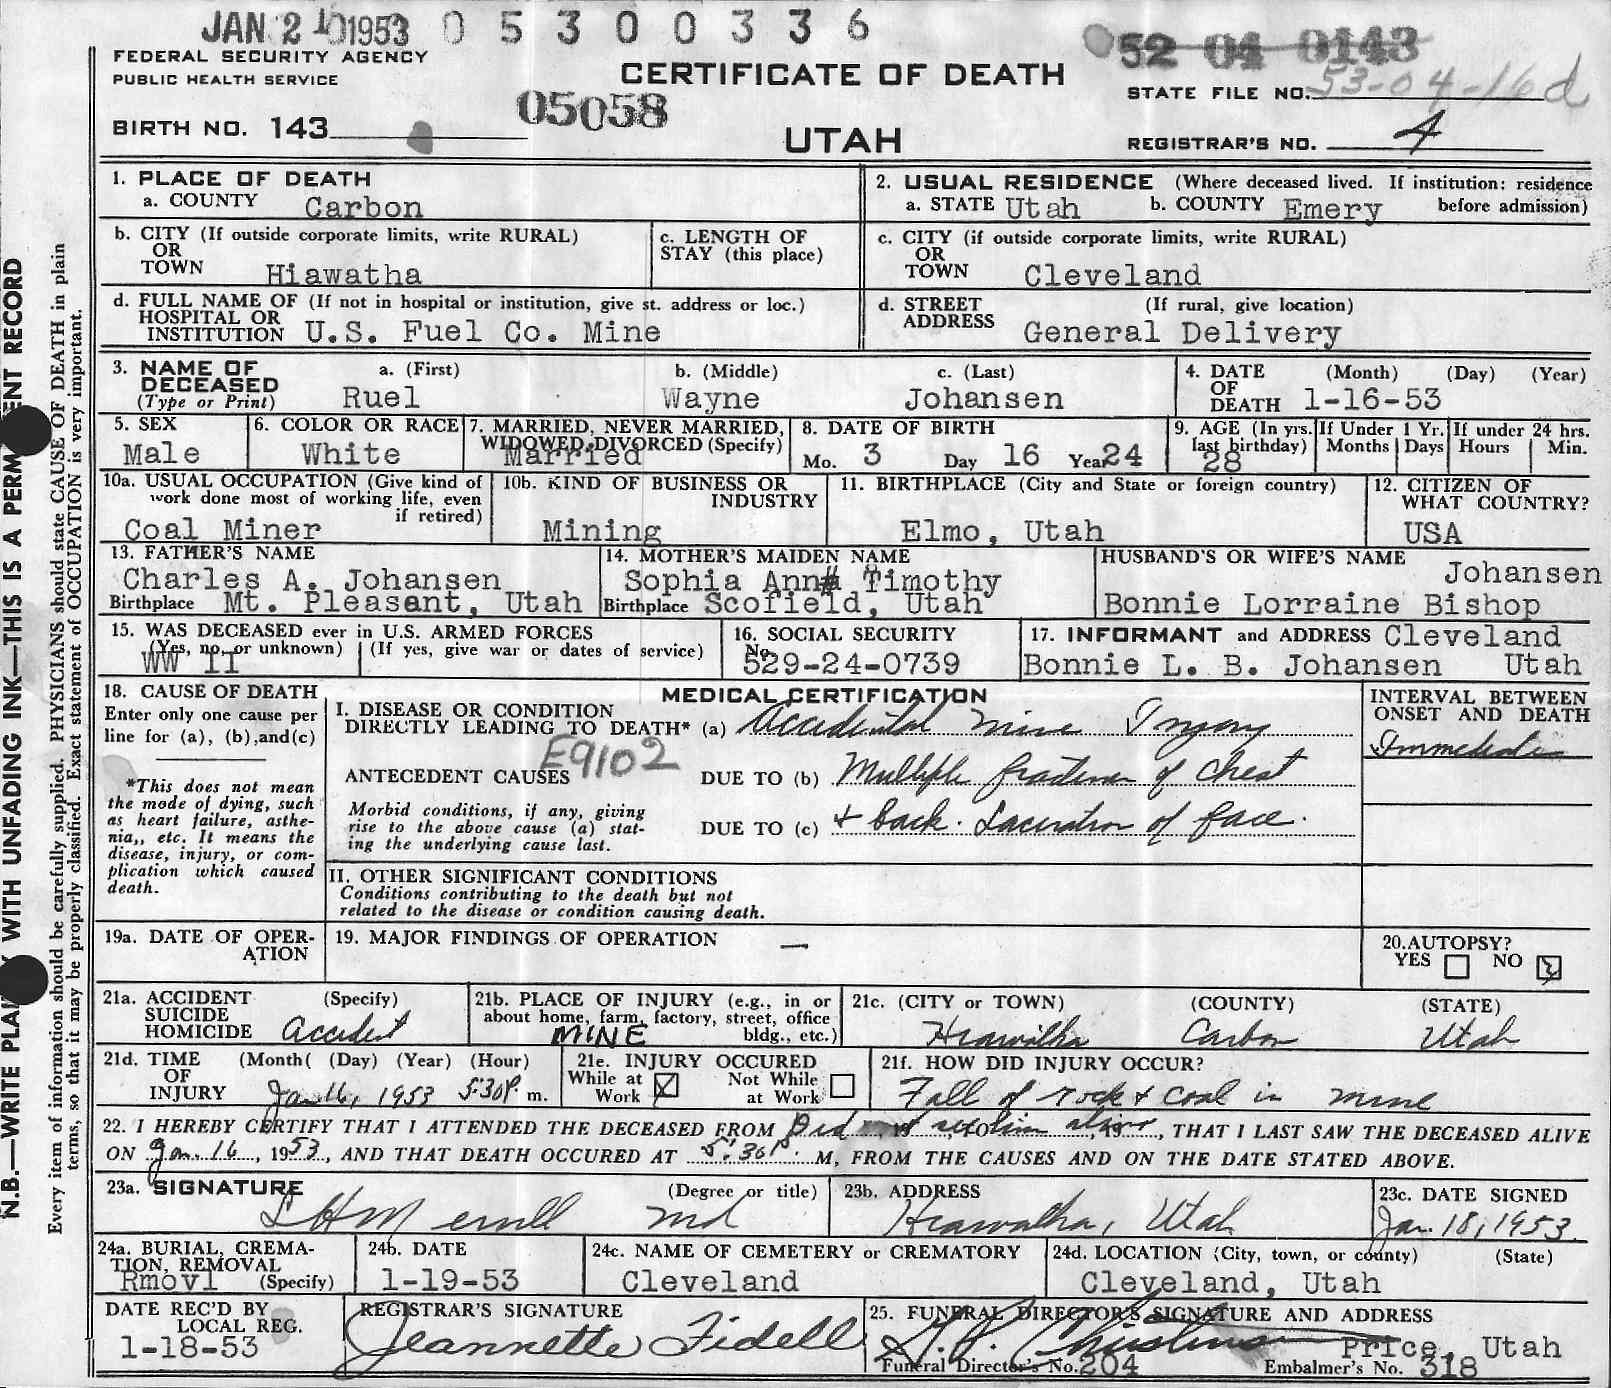 JAN 21 1953 0 5 3 0 0 3 3 6
52 04 0143
FEDERAL SECURITY AGENCY
PUBLIC HEALTH SERVICE
CERTIFICATE OF DEATH
STATE FILE NO. 53-04-16d
05058
BIRTH NO. 143
UTAH
REGISTRAR'S NO. 4
1. PLACE OF DEATH
a. COUNTY Carbon
2. USUAL RESIDENCE (Where deceased lived. If institution: residence
a. STATE Utah b. COUNTY Emery before admission)
b. CITY (If outside corporate limits, write RURAL)
OR
TOWN Hiawatha
c. LENGTH OF
STAY (this place)
c. CITY (if outside corporate limits, write RURAL)
OR
TOWN Cleveland
d. FULL NAME OF (If not in hospital or institution, give st. address or loc.)
HOSPITAL OR
INSTITUTION U.S. Fuel Co. Mine
d. STREET (If rural, give location)
ADDRESS General Delivery
3. NAME OF DECEASED
(Type or Print)
a. (First) b. (Middle) c. (Last)
Ruel Wayne Johansen
4. DATE (Month) (Day) (Year)
OF
DEATH 1-16-53
5. SEX
Male
6. COLOR OR RACE
White
7. MARRIED, NEVER MARRIED,
WIDOWED, DIVORCED (Specify)
Married
8. DATE OF BIRTH
Mo. 3 Day 16 Year 24
9. AGE (In yrs. last birthday)
28
If Under 1 Yr.
Months Days
If under 24 hrs.
Hours Min.
10a. USUAL OCCUPATION (Give kind of
work done most of working life, even
if retired)
Coal Miner
10b. KIND OF BUSINESS OR
INDUSTRY
Mining
11. BIRTHPLACE (City and State or foreign country)
Elmo, Utah
12. CITIZEN OF
WHAT COUNTRY?
USA
13. FATHER'S NAME
Charles A. Johansen
Birthplace Mt. Pleasant, Utah
14. MOTHER'S MAIDEN NAME
Sophia Ann Timothy
Birthplace Scofield, Utah
HUSBAND'S OR WIFE'S NAME
Johansen
Bonnie Lorraine Bishop
15. WAS DECEASED ever in U.S. ARMED FORCES
(Yes, no, or unknown) (If yes, give war or dates of service)
WW II
16. SOCIAL SECURITY
No.
529-24-0739
17. INFORMANT and ADDRESS Cleveland
Bonnie L. B. Johansen Utah
18. CAUSE OF DEATH
Enter only one cause per
line for (a), (b), and (c)
*This does not mean
the mode of dying, such
as heart failure, asthe-
nia,, etc. It means the
disease, injury, or com-
plication which caused
death.
MEDICAL CERTIFICATION
I. DISEASE OR CONDITION
DIRECTLY LEADING TO DEATH* (a) Accidental mine Injury
E9102
ANTECEDENT CAUSES DUE TO (b) Multiple fractures of chest
Morbid conditions, if any, giving
rise to the above cause (a) stat-
ing the underlying cause last.
DUE TO (c) + back. Laceration of face.
INTERVAL BETWEEN
ONSET AND DEATH
Immediate
II. OTHER SIGNIFICANT CONDITIONS
Conditions contributing to the death but not
related to the disease or condition causing death.
19a. DATE OF OPER-
ATION
19. MAJOR FINDINGS OF OPERATION —
20. AUTOPSY?
YES NO
21a. ACCIDENT (Specify)
SUICIDE
HOMICIDE Accident
21b. PLACE OF INJURY (e.g., in or
about home, farm, factory, street, office
bldg., etc.)
MINE
21c. (CITY or TOWN) (COUNTY) (STATE)
Hiawatha Carbon Utah
21d. TIME (Month( (Day) (Year) (Hour)
OF
INJURY Jan 16, 1953 5:30P. m.
21e. INJURY OCCURED
While at Work Not While at Work
21f. HOW DID INJURY OCCUR?
Fall of rock + coal in mine
22. I HEREBY CERTIFY THAT I ATTENDED THE DECEASED FROM Did not see him alive, 19, THAT I LAST SAW THE DECEASED ALIVE
ON Jan. 16, 1953, AND THAT DEATH OCCURED AT 5:30P. M, FROM THE CAUSES AND ON THE DATE STATED ABOVE.
23a. SIGNATURE (Degree or title)
L H Merrill MD
23b. ADDRESS
Hiawatha, Utah
23c. DATE SIGNED
Jan. 18, 1953.
24a. BURIAL, CREMA-
TION, REMOVAL
Rmovl (Specify)
24b. DATE
1-19-53
24c. NAME OF CEMETERY or CREMATORY
Cleveland
24d. LOCATION (City, town, or county) (State)
Cleveland, Utah
DATE REC'D BY
LOCAL REG.
1-18-53
REGISTRAR'S SIGNATURE
Jeannette Fidell
25. FUNERAL DIRECTOR'S SIGNATURE AND ADDRESS
Price, Utah
Funeral Director's No. 204 Embalmer's No. 318
N.B.—WRITE WITH UNFADING INK—THIS IS A RECORD
Every item of information should be carefully supplied. PHYSICIANS should state CAUSE OF DEATH in plain
terms, so that it may be properly classified. Exact statement of OCCUPATION is very important.